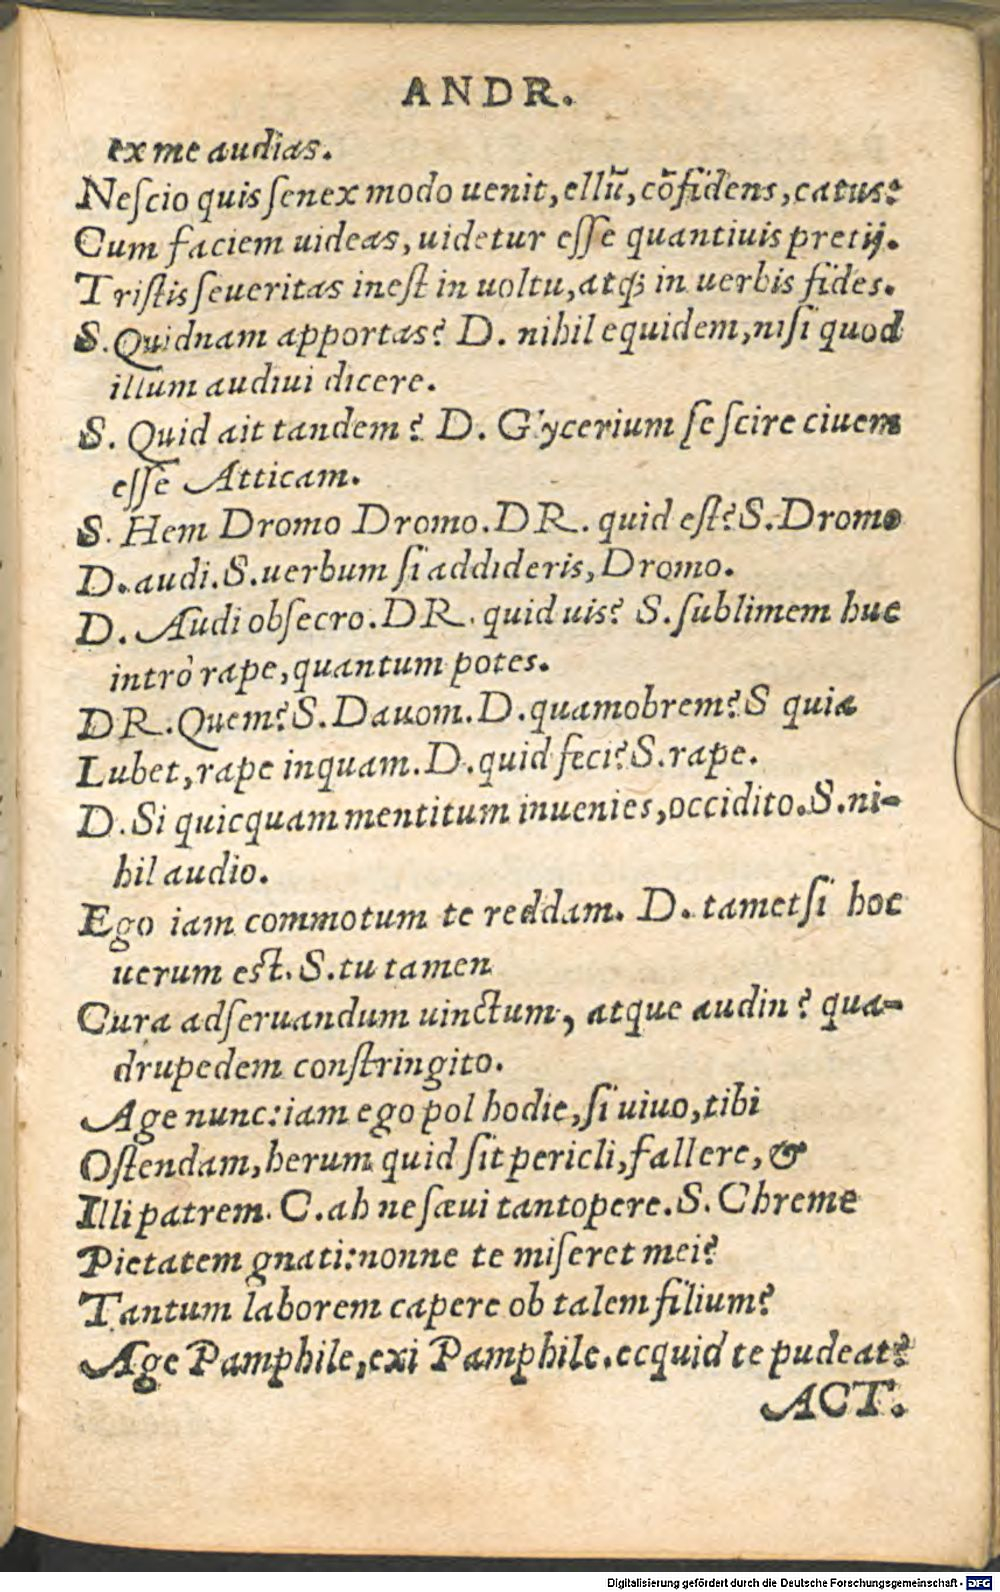 ANDR.
ex me audias.
Neſcio quis ſenex modo uenit, ellũ, cõfidens, catus?
Cum faciem uideas, uidetur eſſe quantiuis pretij.
Triſtis ſeueritas ineſt in uoltu, atq; in uerbis fides.
S. Quidnam apportas? D. nihil equidem, niſi quod
illum audiui dicere.
S. Quid ait tandem? D. Glycerium ſe ſcire ciuem
eſſe Atticam.
S. Hem Dromo Dromo. DR. quid eſt? S. Dromo
D. audi. S. uerbum ſi addideris, Dromo.
D. Audi obſecro. DR. quid uis? S. ſublimem huc
intrò rape, quantum potes.
DR. Quem? S. Dauom. D. quamobrem? S quia
Lubet, rape inquam. D. quid feci? S. rape.
D. Si quicquam mentitum inuenies, occidito. S. ni-
hil audio.
Ego iam commotum te reddam. D. tametſi hoc
uerum est. S. tu tamen
Cura adſeruandum uinctum, atque audin? qua-
drupedem conſtringito.
Age nunc: iam ego pol hodie, ſi uiuo, tibi
Oſtendam, herum quid ſit pericli, fallere, &
Illi patrem. C. ah ne ſæui tantopere. S. Chreme
Pietatem gnati: nonne te miſeret mei?
Tantum laborem capere ob talem filium?
Age Pamphile, exi Pamphile. ecquid te pudeat?
ACT.
Digitalisierung gefördert durch die Deutsche Forschungsgemeinschaft - DFG